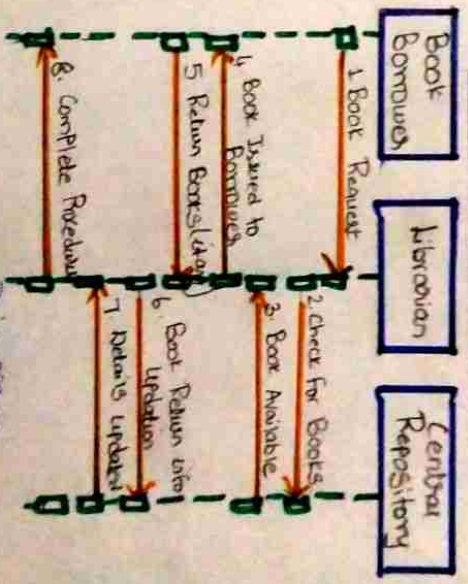 Book
Borrower
Librarian
Central
Repository
1 Book Request
2. Check for Books
3. Book Available
4 Book Issued to
Borrower
5 Return Books
6 Book Return info
updation
7 Details updated
8. Complete Procedure